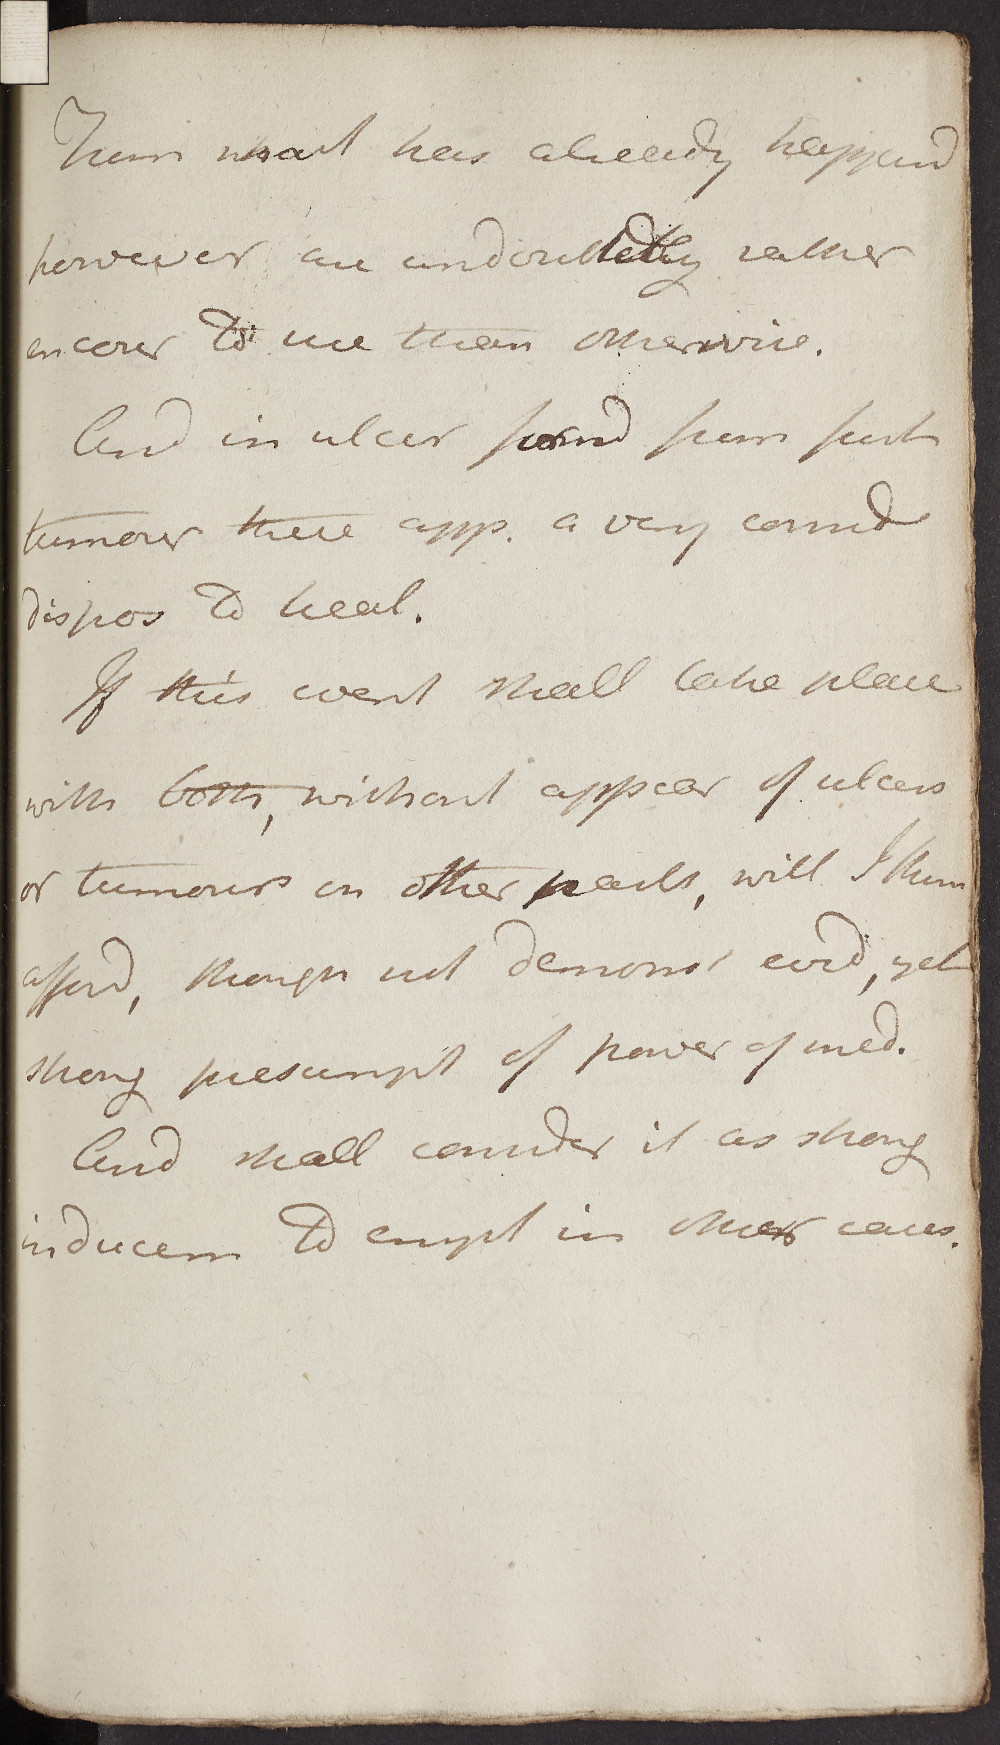 From what has already happend
however are undoubtedly rather
encour to me than otherwise.
And in ulcer formd from such
tumour there app. a very consid
dispos to heal.
If this event shall take place
with both, without appear of ulcers
or tumours on other parts, will I think
afford, though not demonst evid, yet
strong presumpt of power of med.
And shall consider it as strong
inducem to empl in other cases.